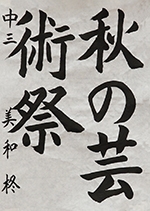 秋の芸
術祭
中三 美和柊